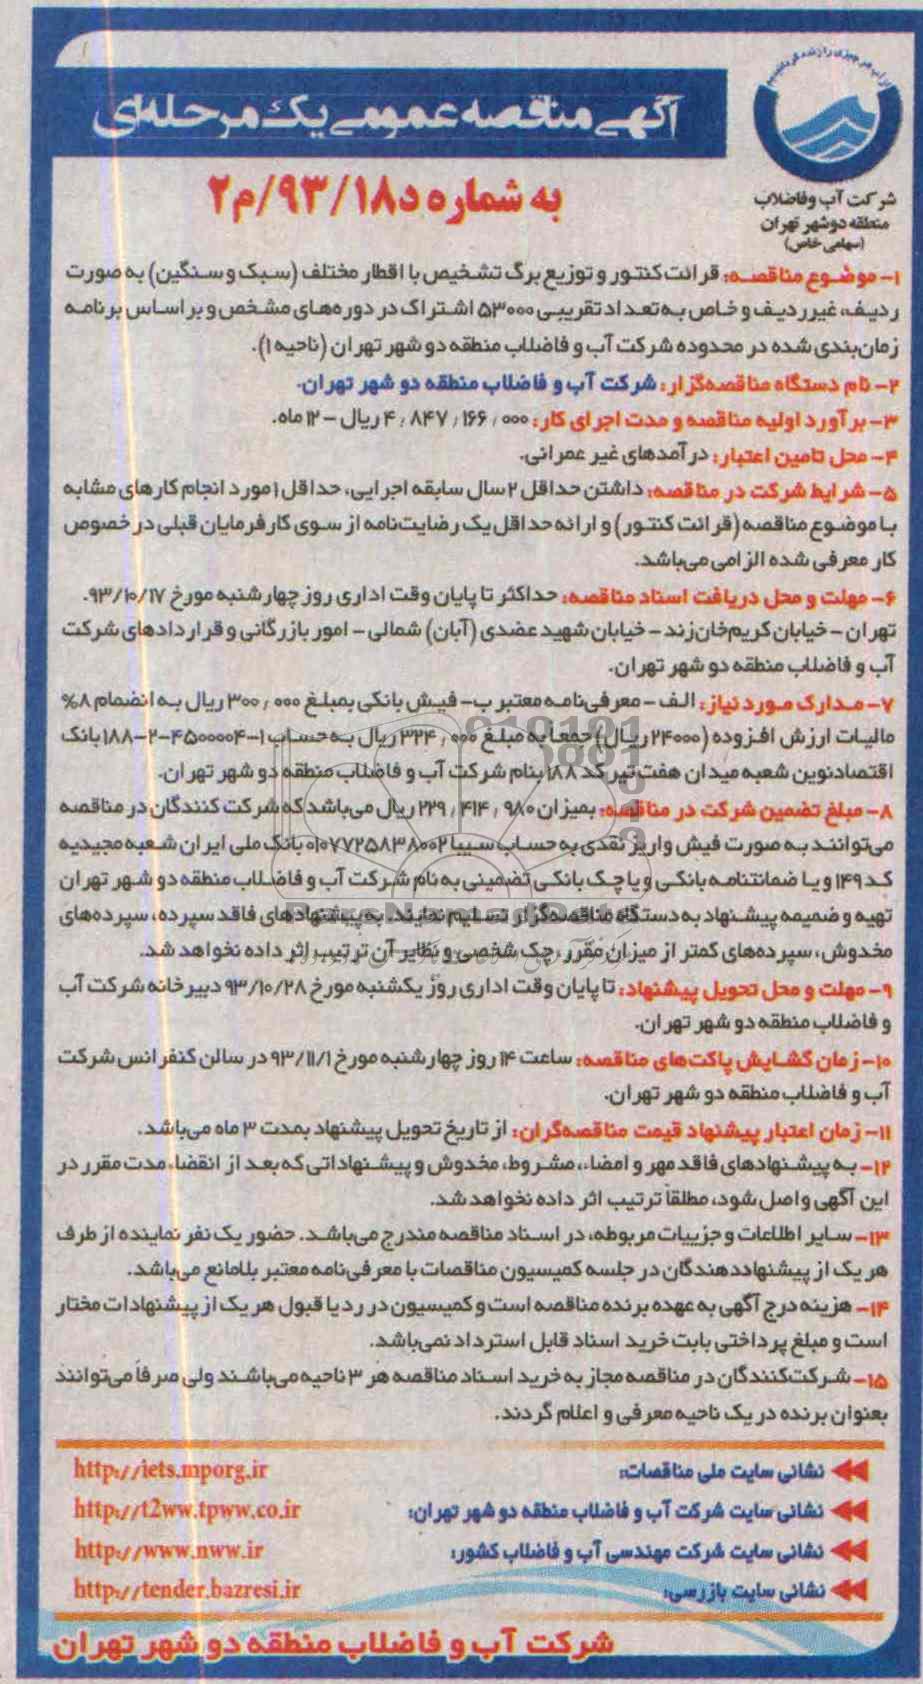 آگهی مناقصه عمومی یک مرحله‌ای
به شماره د۹۳/۱۸/م۲
شرکت آب و فاضلاب
منطقه دو شهر تهران
(سهامی خاص)
۱- موضوع مناقصه: قرائت کنتور و توزیع برگ تشخیص با اقطار مختلف (سبک و سنگین) به صورت
ردیف، غیرردیف و خاص به تعداد تقریبی ۵۳۰۰۰ اشتراک در دوره‌های مشخص و بر اساس برنامه
زمان‌بندی شده در محدوده شرکت آب و فاضلاب منطقه دو شهر تهران (ناحیه ۱).
۲- نام دستگاه مناقصه‌گزار: شرکت آب و فاضلاب منطقه دو شهر تهران.
۳- برآورد اولیه مناقصه و مدت اجرای کار: ۴،۸۴۷،۱۶۶،۰۰۰ ریال – ۱۲ ماه.
۴- محل تامین اعتبار: درآمدهای غیر عمرانی.
۵- شرایط شرکت در مناقصه: داشتن حداقل ۲ سال سابقه اجرایی، حداقل ۱ مورد انجام کارهای مشابه
با موضوع مناقصه (قرائت کنتور) و ارائه حداقل یک رضایت‌نامه از سوی کارفرمایان قبلی در خصوص
کار معرفی شده الزامی می‌باشد.
۶- مهلت و محل دریافت اسناد مناقصه: حداکثر تا پایان وقت اداری روز چهارشنبه مورخ ۹۳/۱۰/۱۷.
تهران – خیابان کریم‌خان‌زند – خیابان شهید عضدی (آبان) شمالی – امور بازرگانی و قراردادهای شرکت
آب و فاضلاب منطقه دو شهر تهران.
۷- مدارک مورد نیاز: الف – معرفی‌نامه معتبر ب- فیش بانکی بمبلغ ۳۰۰،۰۰۰ ریال به انضمام ۸%
مالیات ارزش افزوده (۲۴۰۰۰ ریال) جمعاً به مبلغ ۳۲۴،۰۰۰ ریال به حساب ۱-۴۵۰۰۰۰۴-۲-۱۸۸ بانک
اقتصادنوین شعبه میدان هفت‌تیر کد ۱۸۸ بنام شرکت آب و فاضلاب منطقه دو شهر تهران.
۸- مبلغ تضمین شرکت در مناقصه: بمیزان ۲۲۹،۴۱۴،۹۸۰ ریال می‌باشد که شرکت کنندگان در مناقصه
می‌توانند به صورت فیش واریز نقدی به حساب سیبا ۰۱۰۷۷۲۵۸۳۸۰۰۲ بانک ملی ایران شعبه مجیدیه
کد ۱۴۹ و یا ضمانتنامه بانکی و یا چک بانکی تضمینی به نام شرکت آب و فاضلاب منطقه دو شهر تهران
تهیه و ضمیمه پیشنهاد به دستگاه مناقصه‌گزار تسلیم نمایند. به پیشنهادهای فاقد سپرده، سپرده‌های
مخدوش، سپرده‌های کمتر از میزان مقرر، چک شخصی و نظایر آن ترتیب اثر داده نخواهد شد.
۹- مهلت و محل تحویل پیشنهاد: تا پایان وقت اداری روز یکشنبه مورخ ۹۳/۱۰/۲۸ دبیرخانه شرکت آب
و فاضلاب منطقه دو شهر تهران.
۱۰- زمان گشایش پاکت‌های مناقصه: ساعت ۱۴ روز چهارشنبه مورخ ۹۳/۱۱/۱ در سالن کنفرانس شرکت
آب و فاضلاب منطقه دو شهر تهران.
۱۱- زمان اعتبار پیشنهاد قیمت مناقصه‌گران: از تاریخ تحویل پیشنهاد بمدت ۳ ماه می‌باشد.
۱۲- به پیشنهادهای فاقد مهر و امضاء، مشروط، مخدوش و پیشنهاداتی که بعد از انقضاء مدت مقرر در
این آگهی واصل شود، مطلقاً ترتیب اثر داده نخواهد شد.
۱۳- سایر اطلاعات و جزییات مربوطه، در اسناد مناقصه مندرج می‌باشد. حضور یک نفر نماینده از طرف
هر یک از پیشنهاددهندگان در جلسه کمیسیون مناقصات با معرفی‌نامه معتبر بلامانع می‌باشد.
۱۴- هزینه درج آگهی به عهده برنده مناقصه است و کمیسیون در رد یا قبول هر یک از پیشنهادات مختار
است و مبلغ پرداختی بابت خرید اسناد قابل استرداد نمی‌باشد.
۱۵- شرکت‌کنندگان در مناقصه مجاز به خرید اسناد مناقصه هر ۳ ناحیه می‌باشند ولی صرفاً می‌توانند
بعنوان برنده در یک ناحیه معرفی و اعلام گردند.
نشانی سایت ملی مناقصات: http://iets.mporg.ir
نشانی سایت شرکت آب و فاضلاب منطقه دو شهر تهران: http://t2ww.tpww.co.ir
نشانی سایت شرکت مهندسی آب و فاضلاب کشور: http://www.nww.ir
نشانی سایت بازرسی: http://tender.bazresi.ir
شرکت آب و فاضلاب منطقه دو شهر تهران